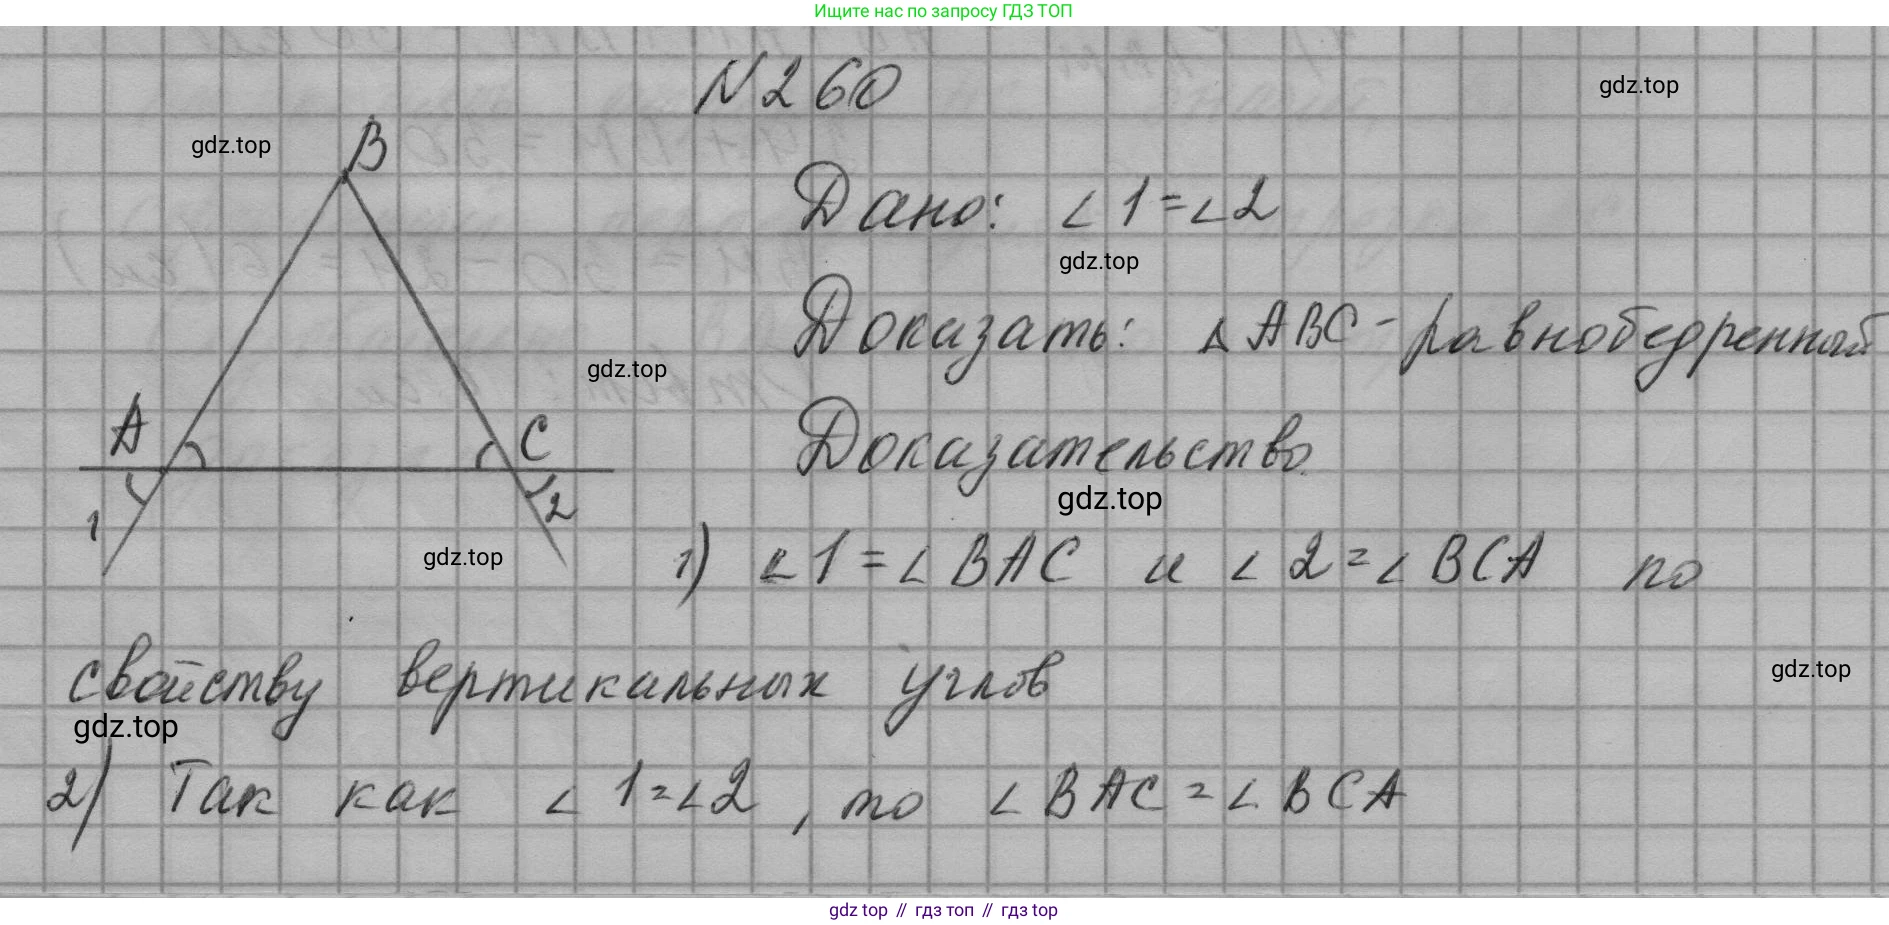 Ищите нас по запросу ГДЗ ТОП
N260
gdz.top
gdz.top
B
Дано: ∠1=∠2
gdz.top
Доказать: △ABC-равнобедренный
gdz.top
A
C
Доказательство
gdz.top
1
2
gdz.top
1) ∠1=∠BAC и ∠2=∠BCA по
свойству вертикальных углов
gdz.top
gdz.top
2) Так как ∠1=∠2, то ∠BAC=∠BCA
gdz top // гдз топ // гдз top